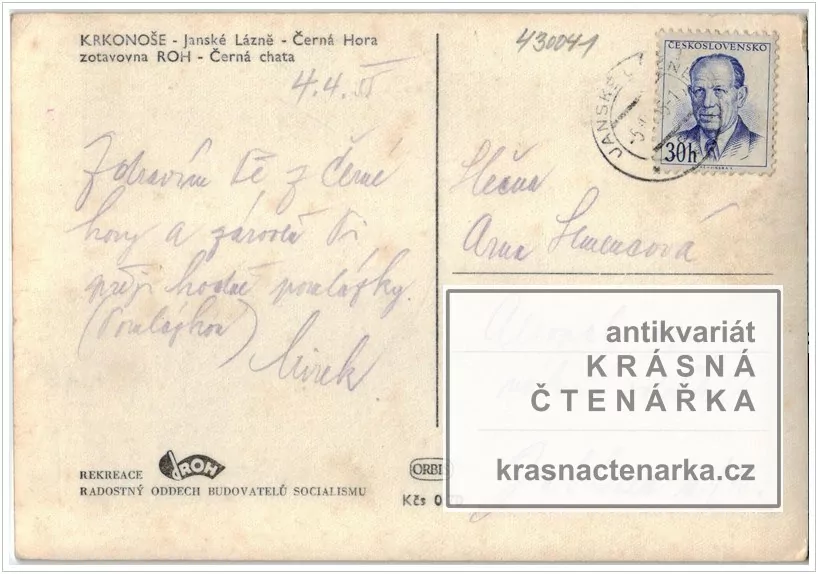 KRKONOŠE - Janské Lázně - Černá Hora
zotavovna ROH - Černá chata
430041
4.4.
Zdravím Tě z Černé
hory a zároveň Ti
přeji hodně pomlázky.
(Pomlázkou)
Mirek.
Slečna
ČESKOSLOVENSKO
30h
JANSKÉ
antikvariát
KRÁSNÁ
ČTENÁŘKA
krasnactenarka.cz
REKREACE
ROH
RADOSTNÝ ODDECH BUDOVATELŮ SOCIALISMU
ORBIS
Kčs 0